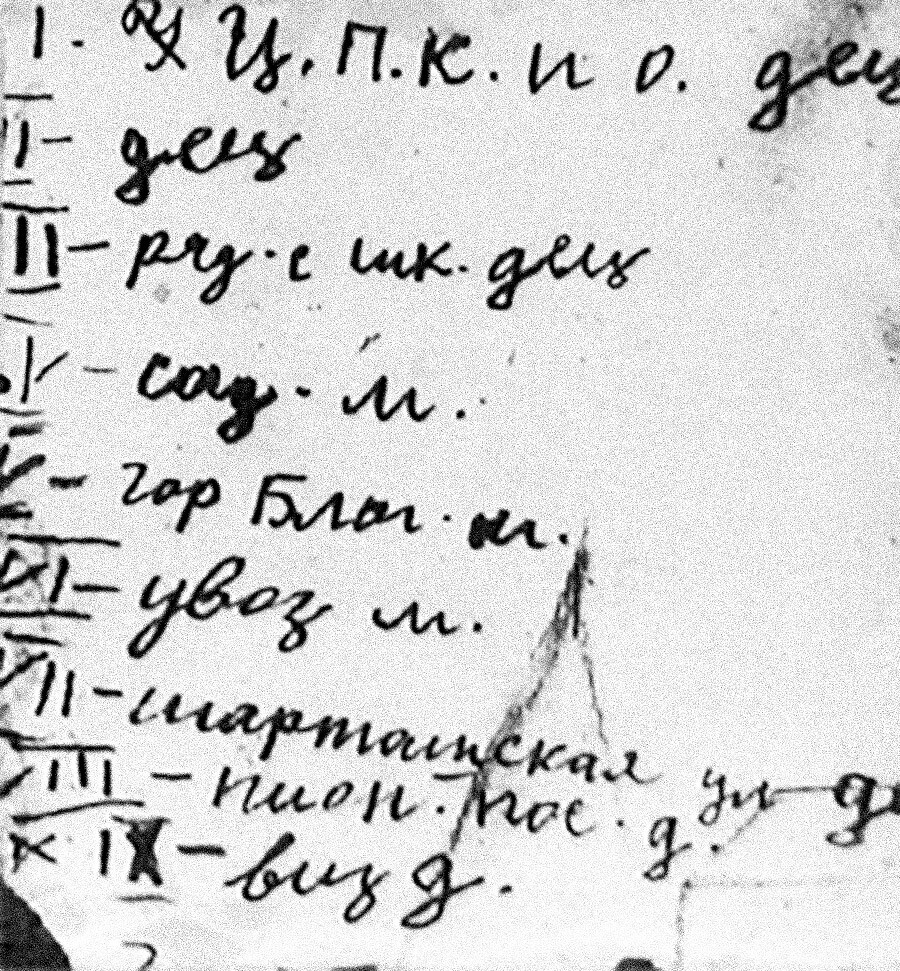 I. Ц.П.К. и О. дец
II - дец
III - ряд. с шк. дец
IV - сад. м.
V - гор Благ. м.
VI - увоз м.
VII - шарташская ул
VIII - пион. пос. д.
IX - виз д.